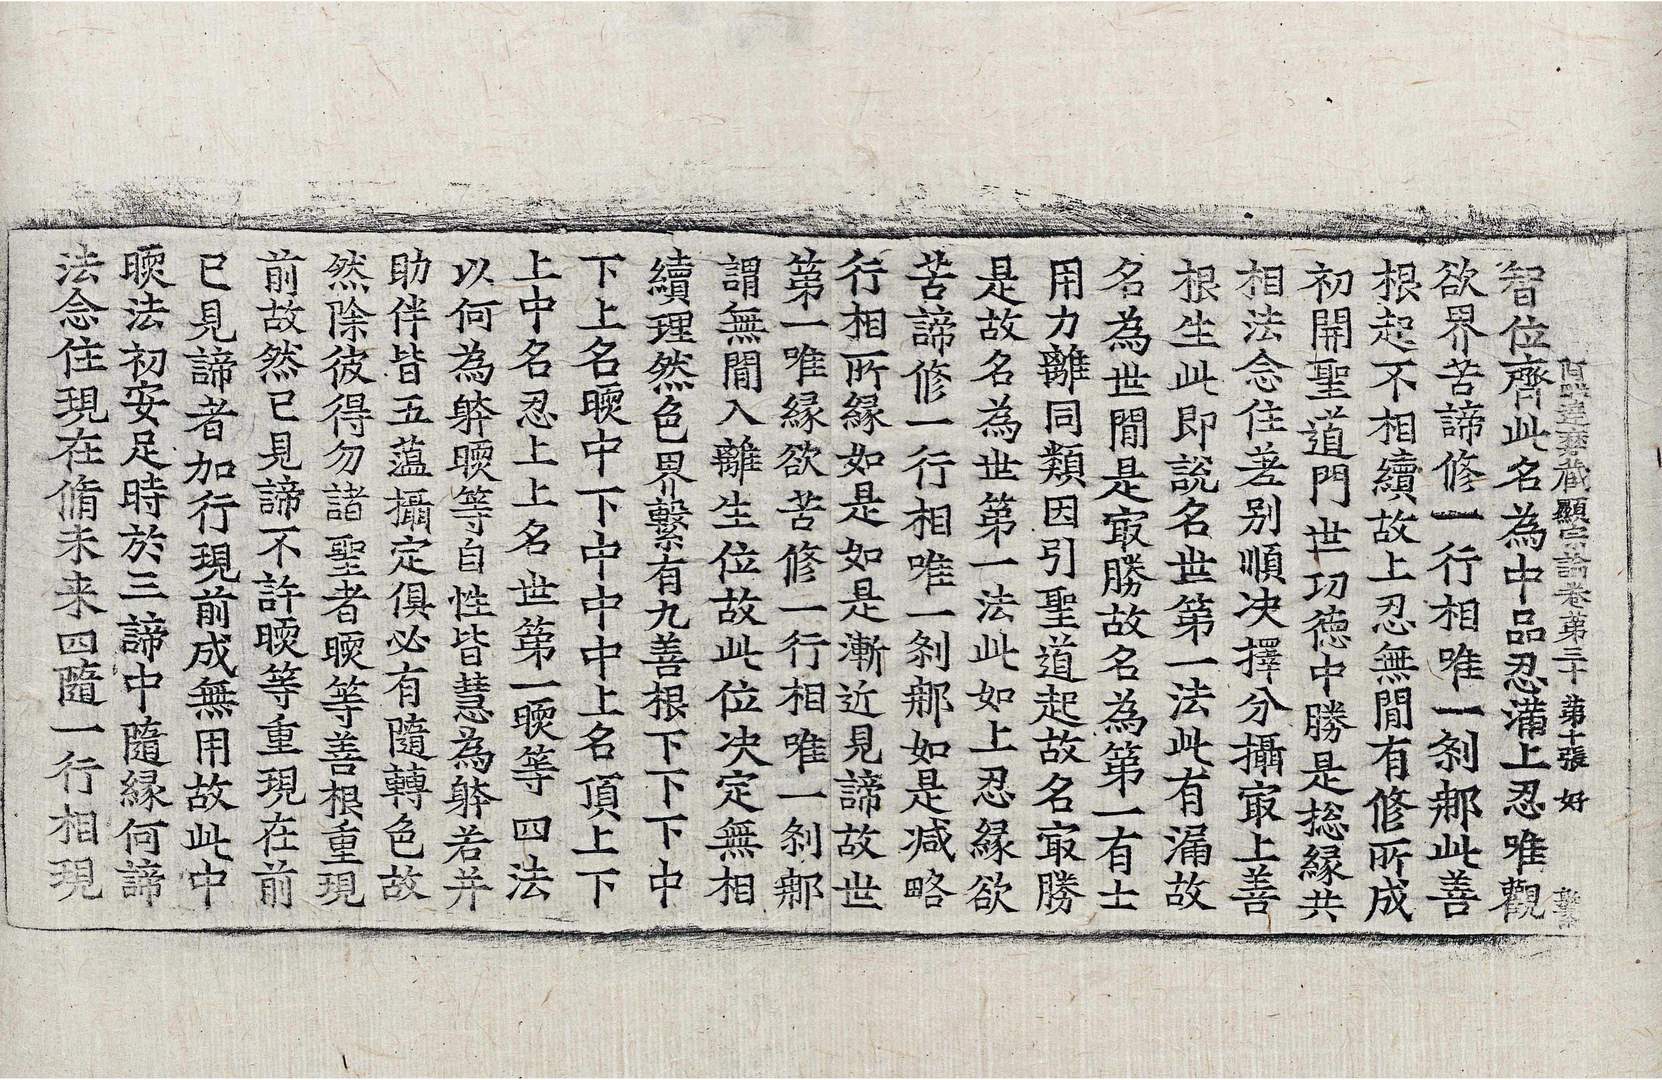 阿毗達磨藏顯宗論卷第三十 第十張 好
智位齊此名為中品忍滿上忍唯觀
欲界苦諦修一行相唯一刹䣯此善
根起不相續故上忍無閒有修所成
初開聖道門世功德中勝是捴縁共
相法念住差别順决擇分攝㝡上善
根生此即說名世第一法此有漏故
名為世閒是㝡勝故名為第一有士
用力離同類因引聖道起故名㝡勝
是故名為世第一法此如上忍縁欲
苦諦修一行相唯一刹䣯如是减略
行相所縁如是如是漸近見諦故世
第一唯縁欲苦修一行相唯一刹䣯
謂無閒入離生位故此位决定無相
續理然色界繫有九善根下下下中
下上名㬉中下中中中上名頂上下
上中名忍上上名世第一㬉等四法
以何為躰㬉等自性皆慧為躰若并
助伴皆五薀攝定俱必有隨轉色故
然除彼得勿諸聖者㬉等善根重現
前故然已見諦不許㬉等重現在前
已見諦者加行現前成無用故此中
㬉法初安足時於三諦中隨縁何諦
法念住現在脩未来四隨一行相現